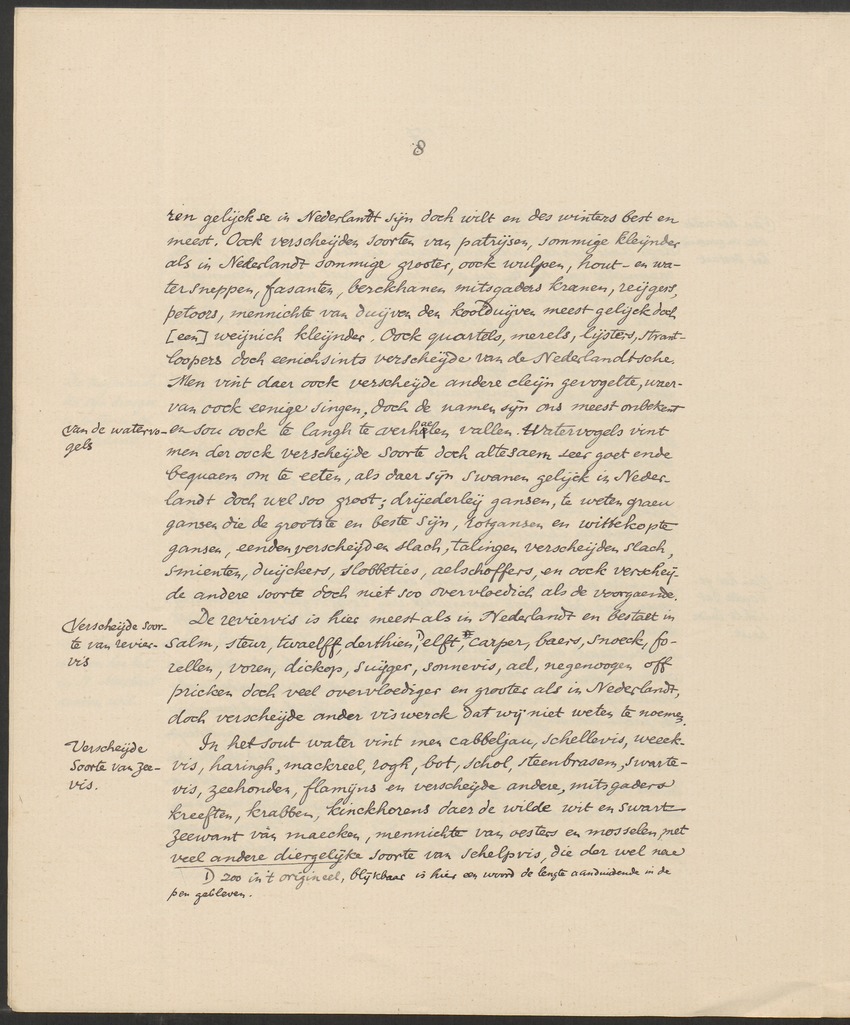 8
ren gelijck se in Nederlandt sijn doch wilt en des winters best en
meest. Oock verscheijden soorten van patrijsen, sommige kleijnder
als in Nederlandt sommige grooter, oock wulpen, hout- en wa-
tersneppen, fasanten, berckhanen mitsgaders kranen, reijgers,
petoors, mennichte van duijven den koolduijven meest gelijck doch
[een] weijnich kleijnder. Oock quartels, merels, lijsters, strant-
loopers doch eenichsints verscheijde van de Nederlandtsche.
Men vint daer oock verscheijde andere cleijn gevogelte, waer-
van oock eenige singen, doch de namen sijn ons meest onbekent
van de watervo-
gels
en sou oock te langh te verhaelen vallen. Watervogels vint
men der oock verscheijde soorte doch altesaem seer goet ende
bequaem om te eeten, als daer sijn swanen gelijck in Neder-
landt doch wel soo groot; drijederleij gansen, te weten graeu
gansen die de grootste en beste sijn, rotgansen en wittekopte
gansen, eenden verscheijden slach, talingen verscheijden slach,
smienten, duijckers, slobbeties, aelschoffers, en oock verscheij-
de andere soorte doch niet soo overvloedich als de voorgaende.
Verscheijde soor-
te van revier-
vis
De reviervis is hier meest als in Nederlandt en bestaet in
salm, steur, twaelff, derthien, 1) elft, carper, baers, snoeck, fo-
rellen, voren, dickop, suijger, sonnevis, ael, negenoogen off
pricken doch veel overvloediger en grooter als in Nederlandt,
doch verscheijde ander viswerck dat wij niet weten te noemen.
Verscheijde
soorte van zee-
vis.
In het sout water vint men cabbeljau, schellevis, weeck-
vis, haringh, mackreel, rogh, bot, schol, steenbrasem, swarte-
vis, zeehonden, flamijns en verscheijde andere, mitsgaders
kreeften, krabben, kinckhorens daer de wilde wit en swart
zeewant van maecken, mennichte van oesters en mosselen met
veel andere diergelijke soorte van schelpvis, die der wel nae
1) zoo in 't origineel, blijkbaar is hier een woord de lengte aanduidende in de
pen gebleven.